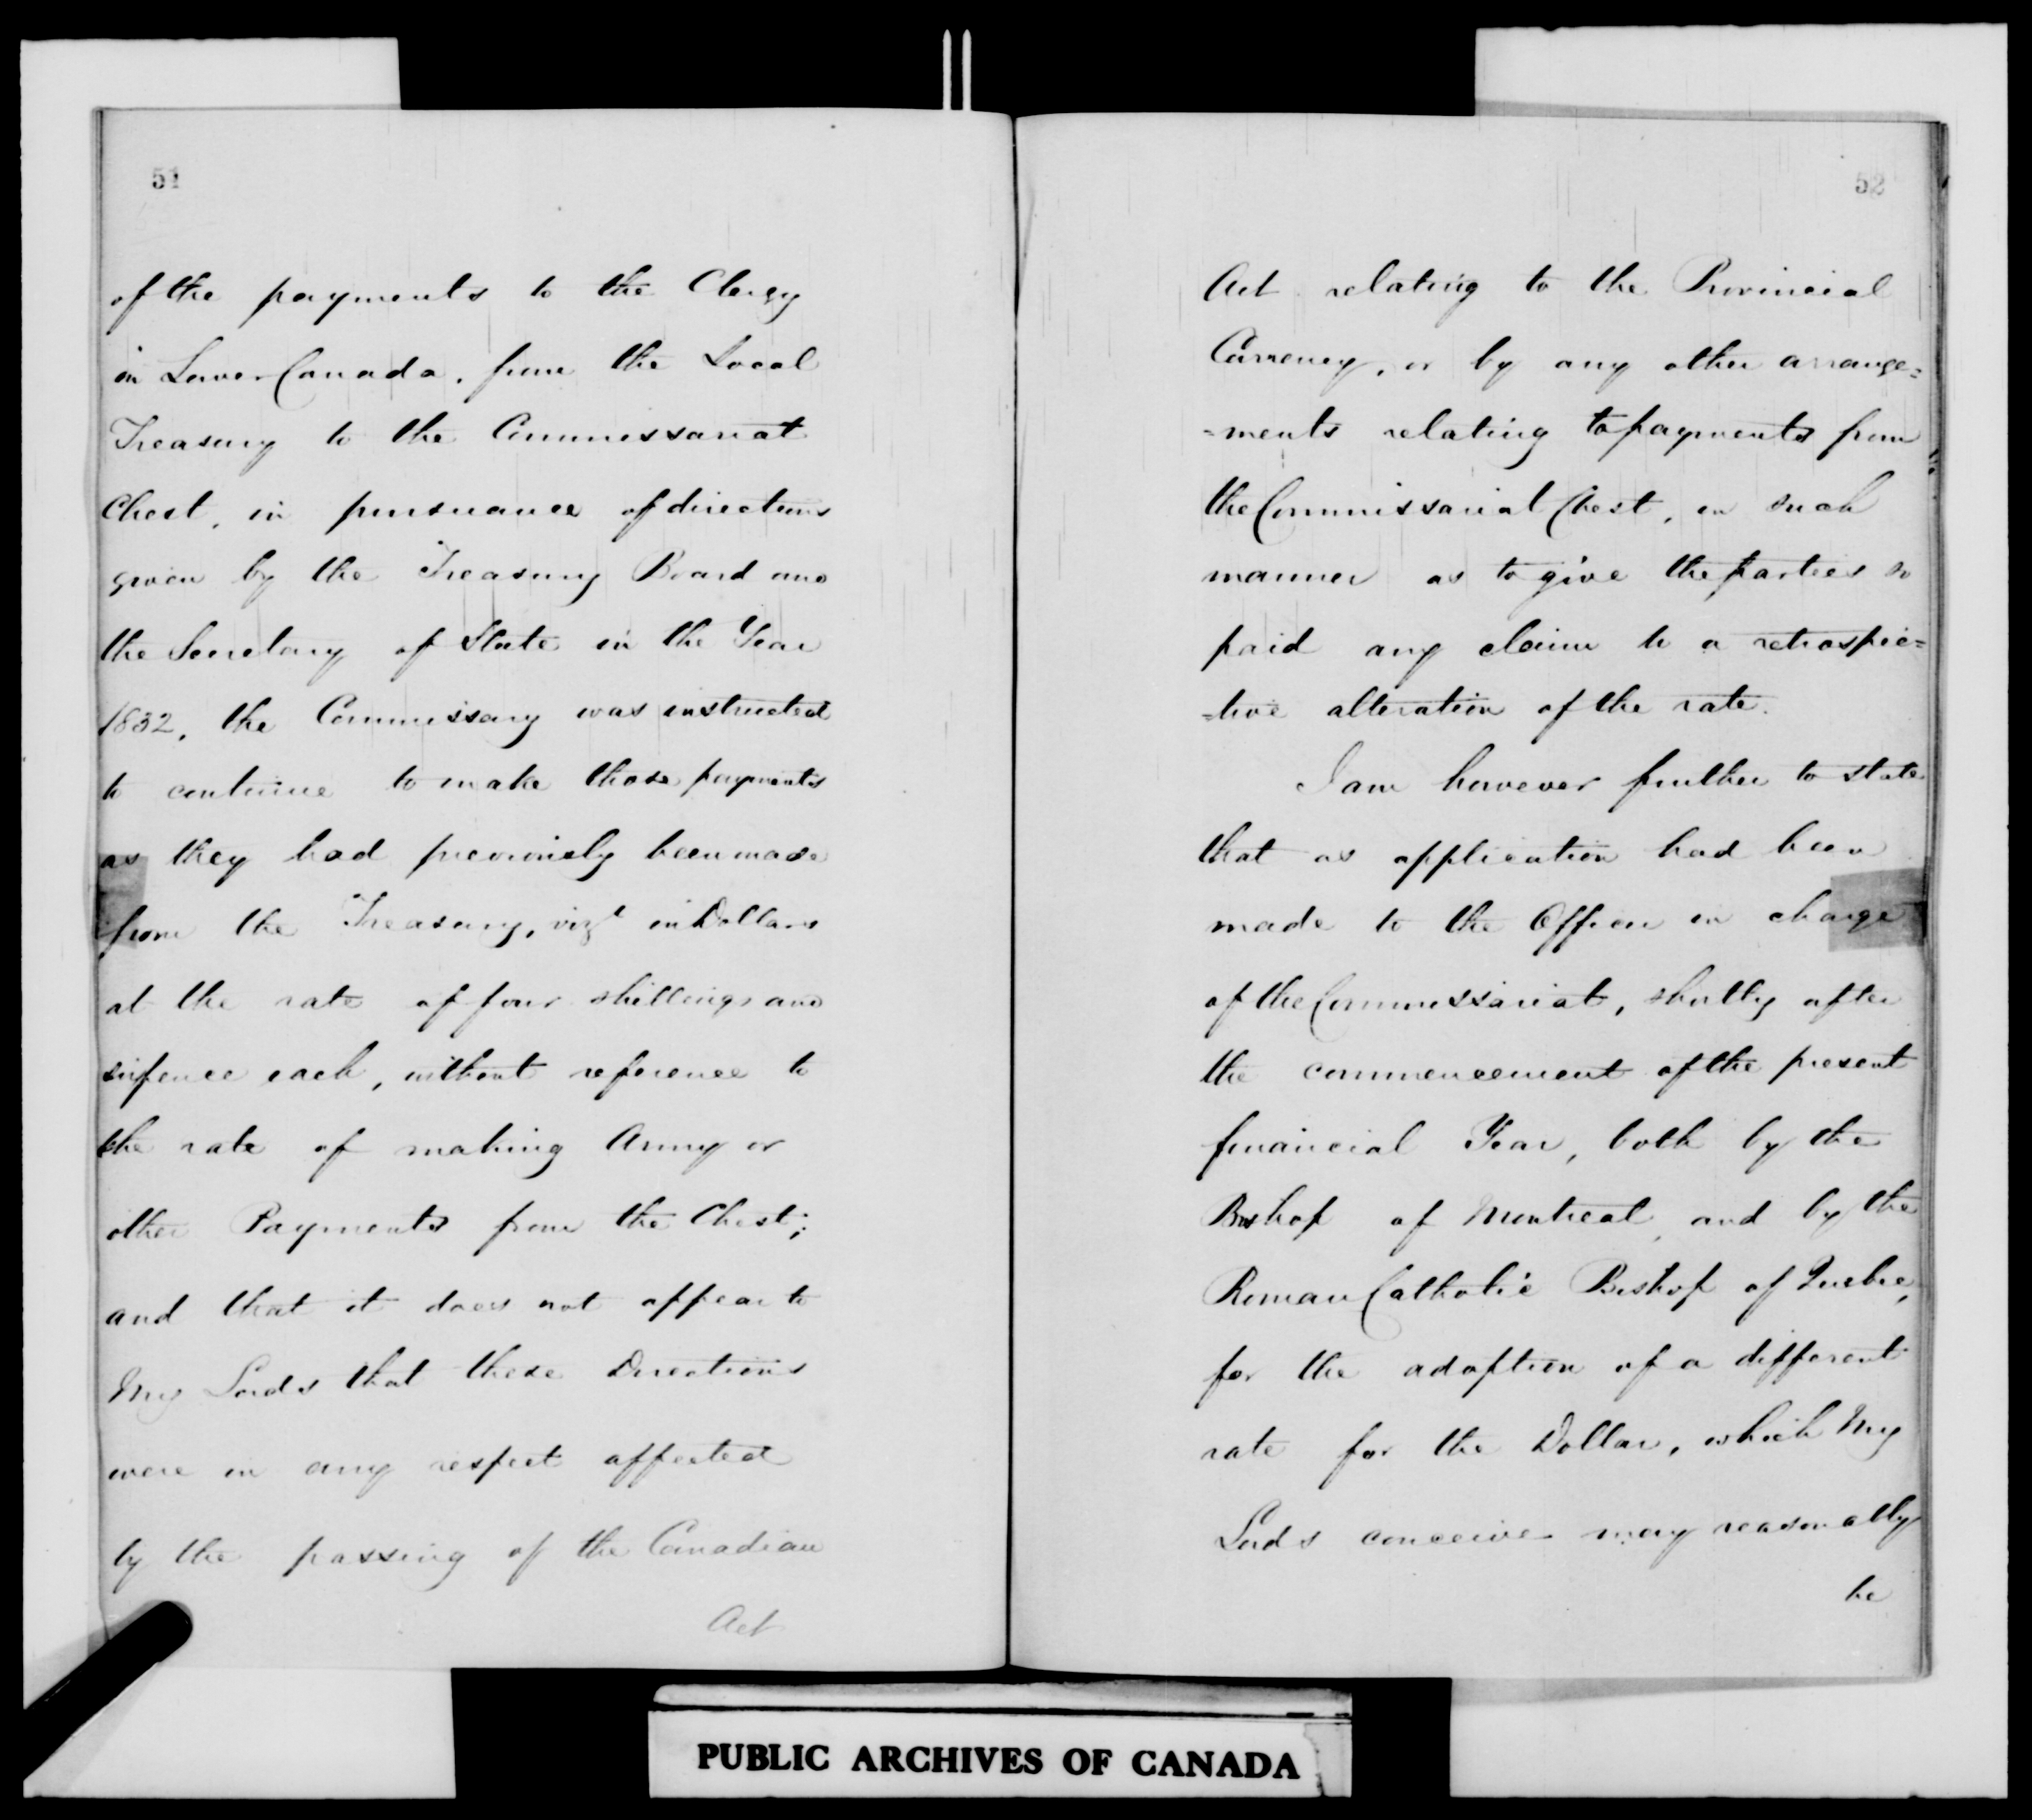 51
of the payments to the Clergy
in Lower Canada, from the Local
Treasury to the Commissariat
Chest, in pursuance of directions
given by the Treasury Board and
the Secretary of State in the Year
1832, the Commissary was instructed
to continue to make those payments
as they had previously been made
from the Treasury, vizt in Dollars
at the rate of four shillings and
sixpence each, without reference to
the rate of making Army or
other Payments from the Chest;
and that it does not appear to
My Lords that these Directions
were in any respect affected
by the passing of the Canadian
Act
52
Act relating to the Provincial
Currency, or by any other arrange=
=ments relating to payments from
the Commissariat Chest, in such
manner as to give the parties so
paid any claim to a retrospec=
=tive alteration of the rate.
I am however further to state
that as application had been
made to the Officer in charge
of the Commissariat, shortly after
the commencement of the present
financial Year, both by the
Bishop of Montreal, and by the
Roman Catholic Bishop of Quebec,
for the adoption of a different
rate for the Dollar, which My
Lords conceive may reasonably
be
PUBLIC ARCHIVES OF CANADA